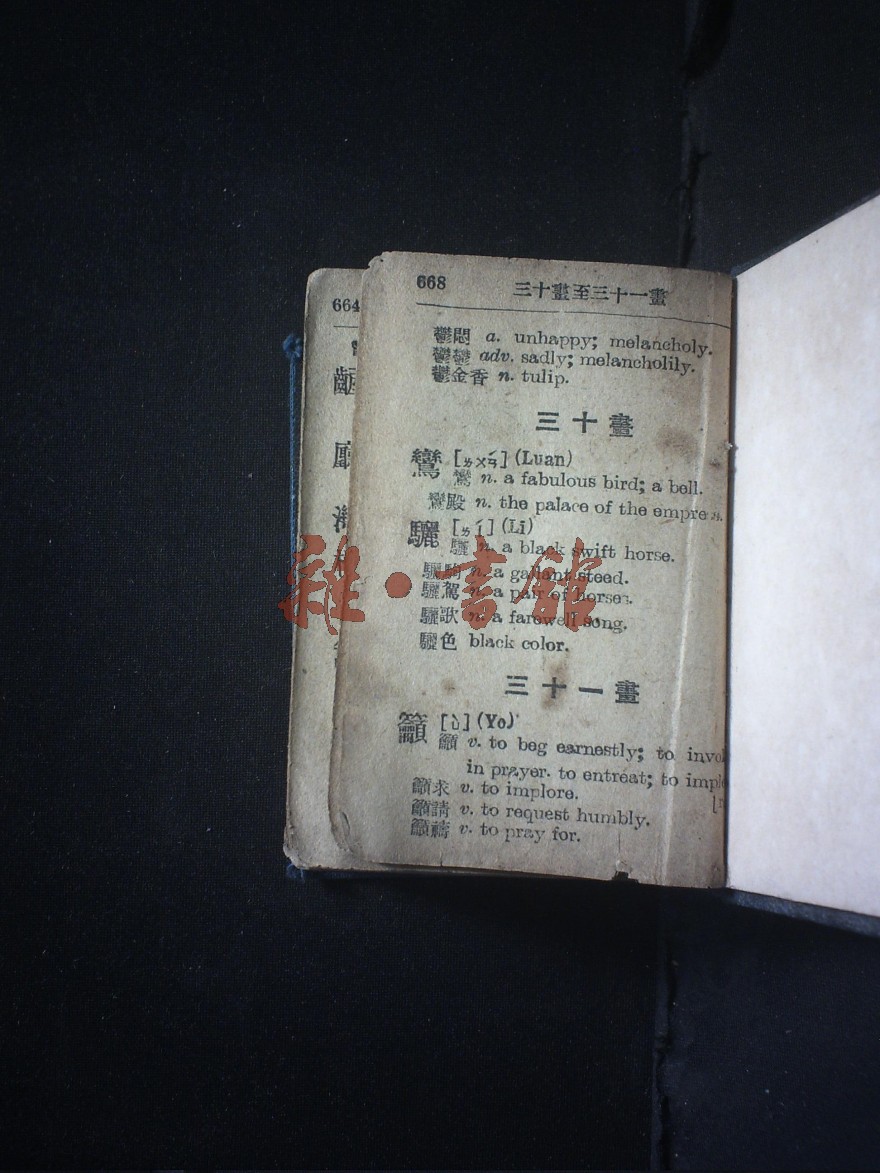 664
668
三十畫至三十一畫
鬱悶 a. unhappy; melancholy.
鬱鬱 adv. sadly; melancholily.
鬱金香 n. tulip.
三十畫
鸞 [ㄌㄨㄢˊ] (Luan)
鸞 n. a fabulous bird; a bell.
鸞殿 n. the palace of the empress.
驪 [ㄌㄧˊ] (Li)
驪 n. a black swift horse.
驪駒 n. a gallant steed.
驪駕 n. a pair of horses.
驪歌 n. a farewell song.
驪色 black color.
三十一畫
籲 (Yo)
籲 v. to beg earnestly; to
in prayer. to entreat; to
籲求 v. to implore.
籲請 v. to request humbly.
籲禱 v. to pray for.
雜·書館